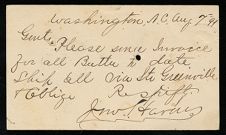 Washington, N.C, Aug 7 '91
Gents,
Please send Invoice
for all Butter to date,
Ship all via Str Greenville
& Oblige
Respecty
Jno.